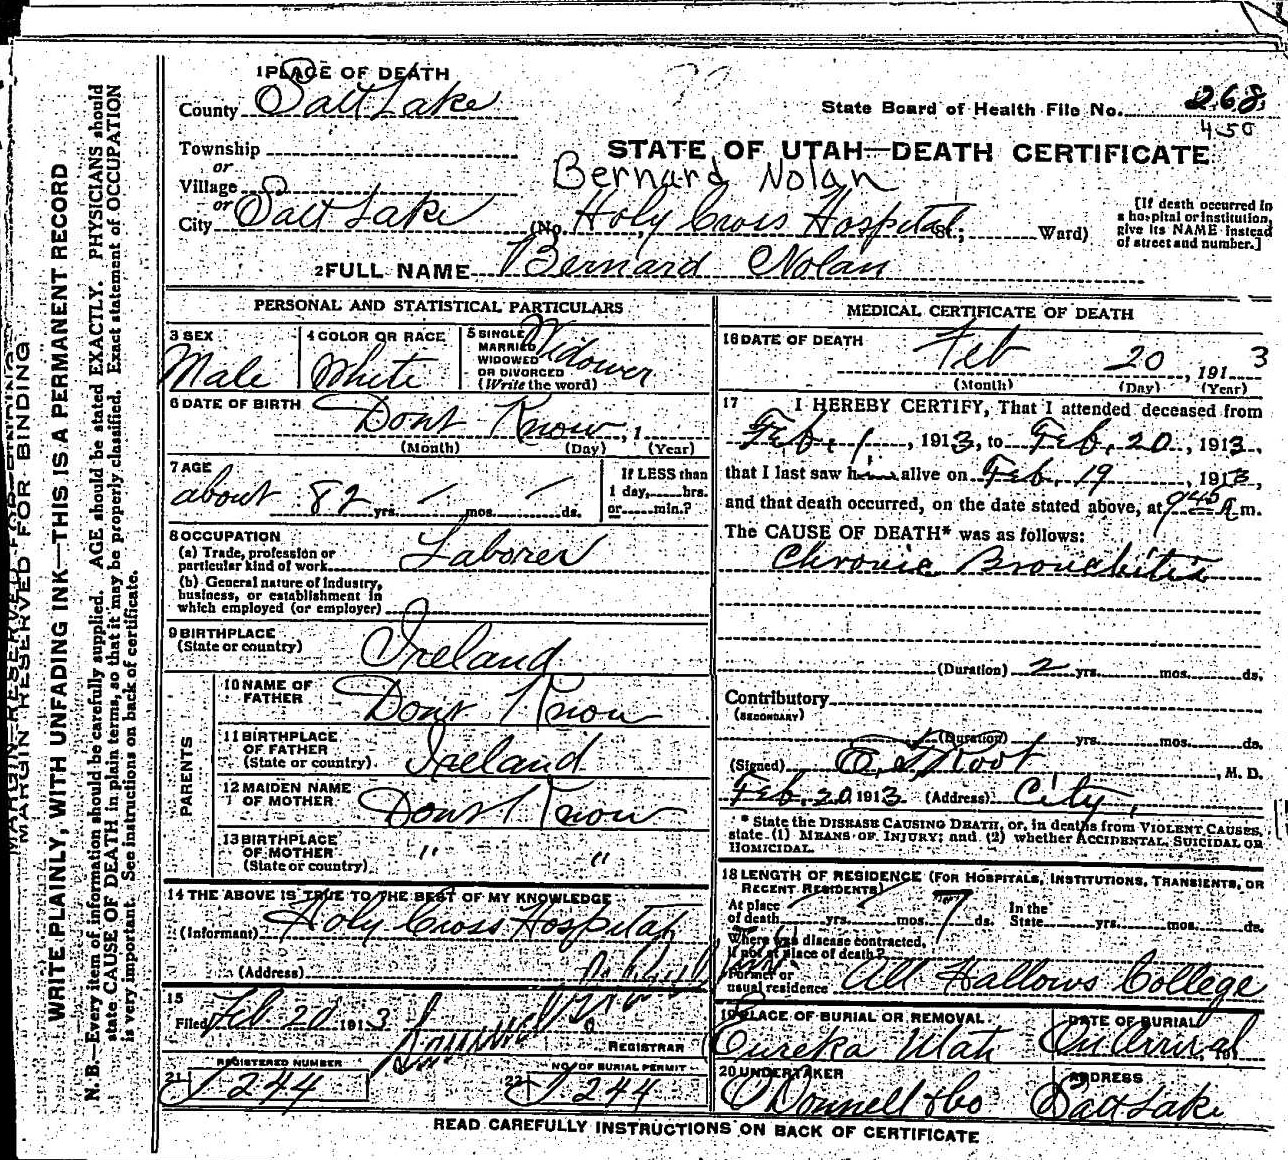 1 PLACE OF DEATH
County Salt Lake
State Board of Health File No. 268
450
Township
or
Village
or
City Salt Lake
STATE OF UTAH—DEATH CERTIFICATE
Bernard Nolan
(No. Holy Cross Hospital St; Ward)
[If death occurred in
a hospital or institution,
give its NAME instead
of street and number.]
2 FULL NAME Bernard Nolan
PERSONAL AND STATISTICAL PARTICULARS
3 SEX
Male
4 COLOR OR RACE
White
5 SINGLE
MARRIED
WIDOWED
OR DIVORCED
(Write the word)
Widower
6 DATE OF BIRTH
Dont Know, 1
(Month) (Day) (Year)
7 AGE
about 82 yrs. mos. ds.
If LESS than
1 day, hrs.
or min.?
8 OCCUPATION
(a) Trade, profession or
particular kind of work Laborer
(b) General nature of industry,
business, or establishment in
which employed (or employer)
9 BIRTHPLACE
(State or country) Ireland
PARENTS
10 NAME OF
FATHER Dont Know
11 BIRTHPLACE
OF FATHER
(State or country) Ireland
12 MAIDEN NAME
OF MOTHER Dont Know
13 BIRTHPLACE
OF MOTHER
(State or country) " "
14 THE ABOVE IS TRUE TO THE BEST OF MY KNOWLEDGE
(Informant) Holy Cross Hospital
(Address)
15
Filed Feb 20 1913
REGISTRAR
REGISTERED NUMBER
21 J 244
NO. OF BURIAL PERMIT
22 J 244
MEDICAL CERTIFICATE OF DEATH
16 DATE OF DEATH
Feb 20, 1913
(Month) (Day) (Year)
17 I HEREBY CERTIFY, That I attended deceased from
Feb. 1, 1913, to Feb. 20, 1913,
that I last saw him alive on Feb. 19, 1913,
and that death occurred, on the date stated above, at 9 45 A m.
The CAUSE OF DEATH* was as follows:
Chronic Bronchitis
(Duration) 2 yrs. mos. ds.
Contributory
(SECONDARY)
(Duration) yrs. mos. ds.
(Signed) Root, M. D.
Feb. 20 1913 (Address) City,
* State the DISEASE CAUSING DEATH, or, in deaths from VIOLENT CAUSES,
state (1) MEANS OF INJURY; and (2) whether ACCIDENTAL, SUICIDAL OR
HOMICIDAL.
18 LENGTH OF RESIDENCE (FOR HOSPITALS, INSTITUTIONS, TRANSIENTS, OR
RECENT RESIDENTS)
At place
of death yrs. mos. 7 ds.
In the
State yrs. mos. ds.
Where was disease contracted,
if not at place of death?
Former or
usual residence All Hallows College
19 PLACE OF BURIAL OR REMOVAL
Eureka Utah
DATE OF BURIAL
On Arrival 191
20 UNDERTAKER
O'Donnell & Co
ADDRESS
Salt Lake
READ CAREFULLY INSTRUCTIONS ON BACK OF CERTIFICATE
MARGIN RESERVED FOR BINDING
MARGIN RESERVED FOR BINDING
WRITE PLAINLY, WITH UNFADING INK—THIS IS A PERMANENT RECORD
N. B.—Every item of information should be carefully supplied. AGE should be stated EXACTLY. PHYSICIANS should
state CAUSE OF DEATH in plain terms, so that it may be properly classified. Exact statement of OCCUPATION
is very important. See instructions on back of certificate.